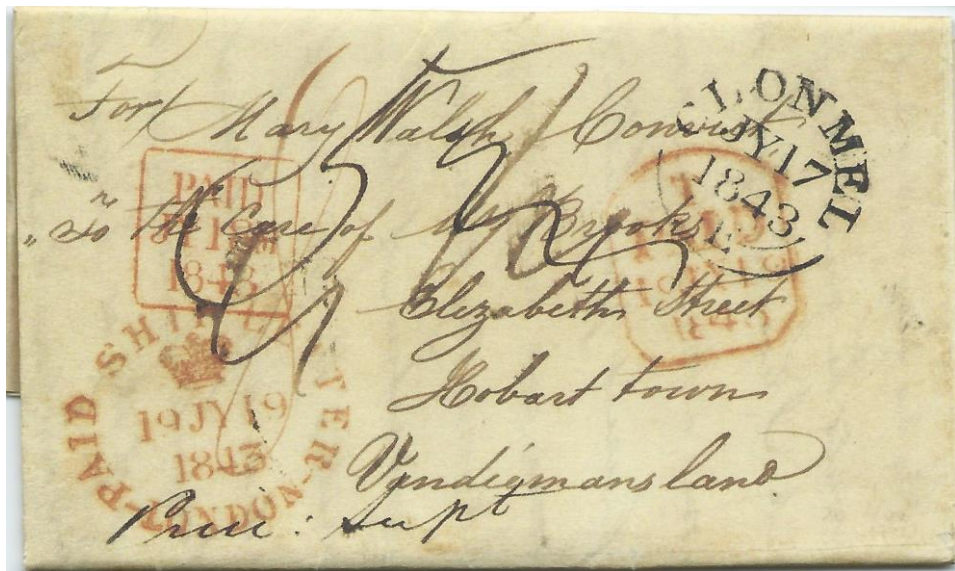 For Mary Walsh Convict
" To the Care of Mr Brooks
Elizabeth Street
Hobart town
Vandiemansland
Prin: Supt
CLONMEL
JY 17
1843
PAID
1843
PAID SHIP LETTER LONDON
19 JY 19
1843
PAID
1843